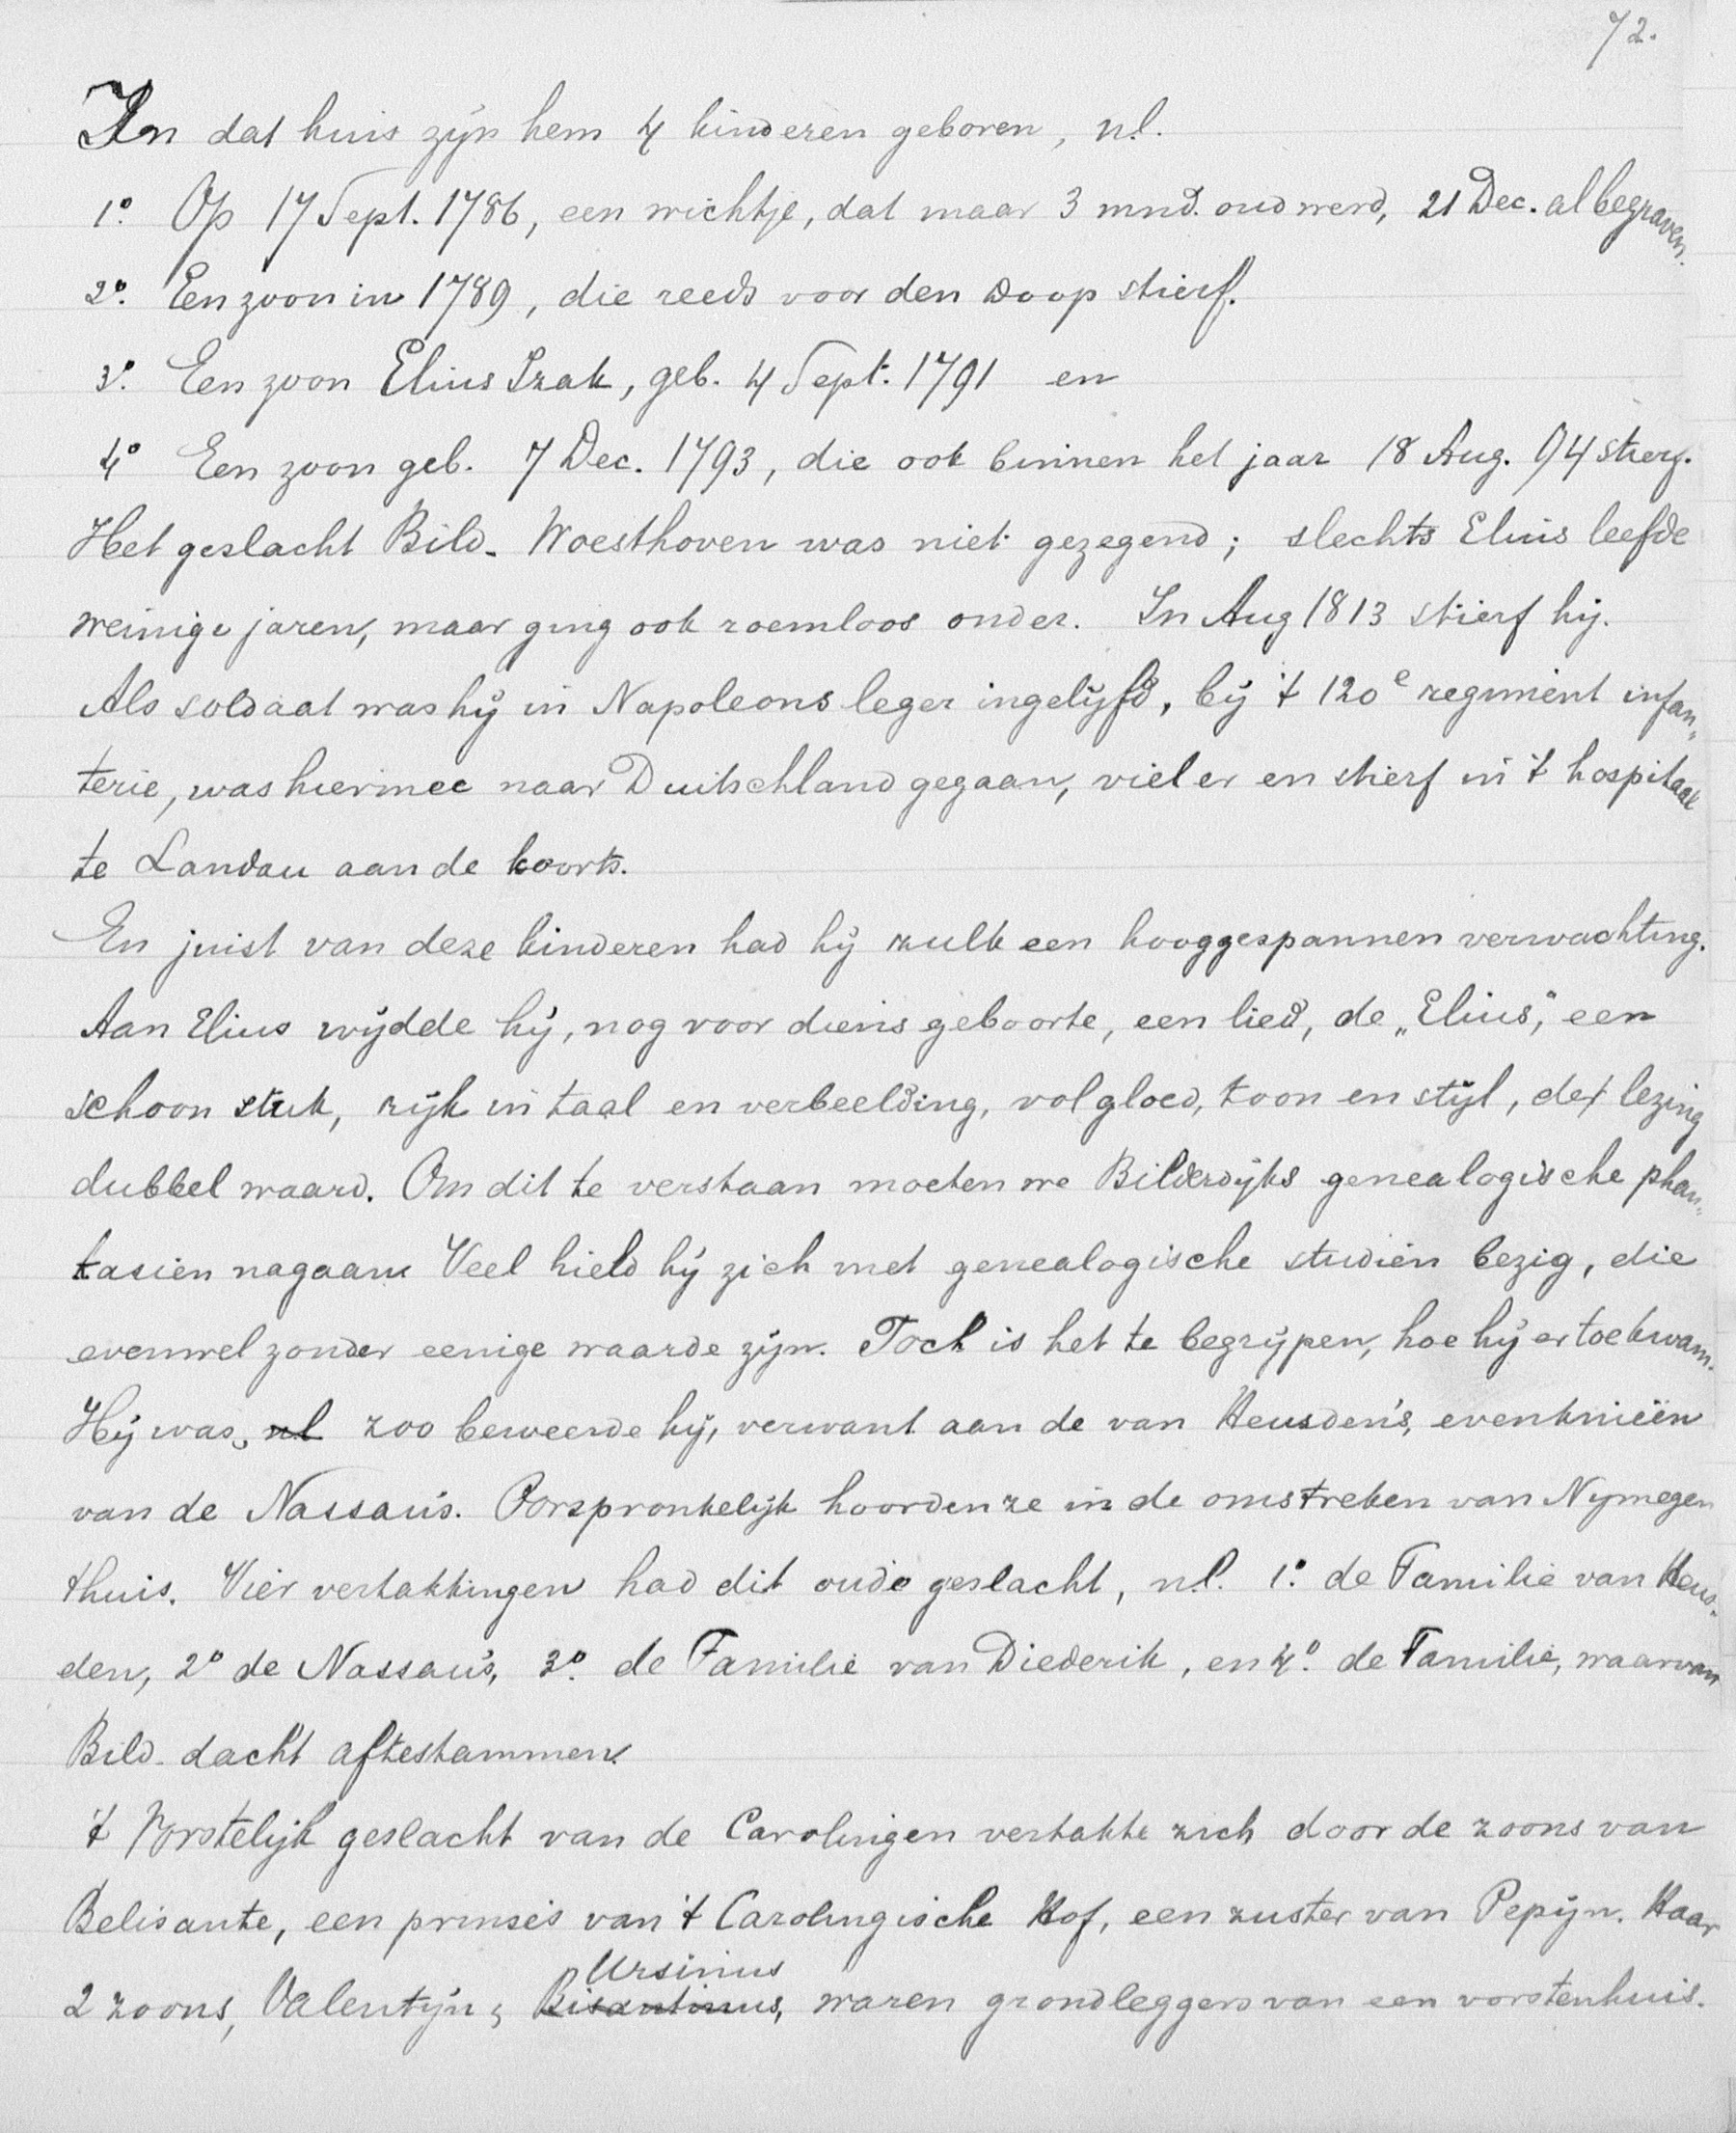 72.
In dat huis zijn hem 4 kinderen geboren, n.l.
1º. Op 17 Sept. 1786, een wichtje, dat maar 3 mnd. oud werd, 21 Dec. al begraven.
2º. Een zoon in 1789, die reeds voor den doop stierf.
3º. Een zoon Elius Izak, geb. 4 Sept. 1791 en
4º Een zoon geb. 7 Dec. 1793, die ook binnen het jaar 18 Aug. 94 stierf.
Het geslacht Bild.-Woesthoven was niet gezegend; slechts Elius leefde
weinige jaren, maar ging ook roemloos onder. In Aug 1813 stierf hij.
Als soldaat was hij in Napoleons leger ingelijfd, bij 't 120e regiment infan„
terie, was hiermee naar Duitschland gegaan, viel er en stierf in 't hospitaal
te Landau aan de koorts.
En juist van deze kinderen had hij zulk een hooggespannen verwachting.
Aan Elius wijdde hij, nog voor diens geboorte, een lied, de „Elius," een
schoon stuk, rijk in taal en verbeelding, vol gloed, toon en stijl, der lezing
dubbel waard. Om dit te verstaan moeten we Bilderdijks genealogische phan„
tasiën nagaan. Veel hield hij zich met genealogische studiën bezig, die
evenwel zonder eenige waarde zijn. Toch is het te begrijpen, hoe hij er toe kwam.
Hij was, nl zoo beweerde hij, verwant aan de van Heusden's, evenknieën
van de Nassau's. Oorspronkelijk hoorden ze in de omstreken van Nijmegen
thuis. Vier vertakkingen had dit oude geslacht, n.l. 1º. de Familie van Heus-
den, 2º de Nassau's, 3º. de Familie van Diederik, en 4º. de Familie, waarvan
Bild. dacht aftestammen.
't Vorstelijk geslacht van de Carolingen vertakte zich door de zoons van
Belisante, een prinses van 't Carolingische Hof, een zuster van Pepijn. Haar
Ursinus
2 zoons, Valentijn & Bisantinus, waren grondleggers van een vorstenhuis.